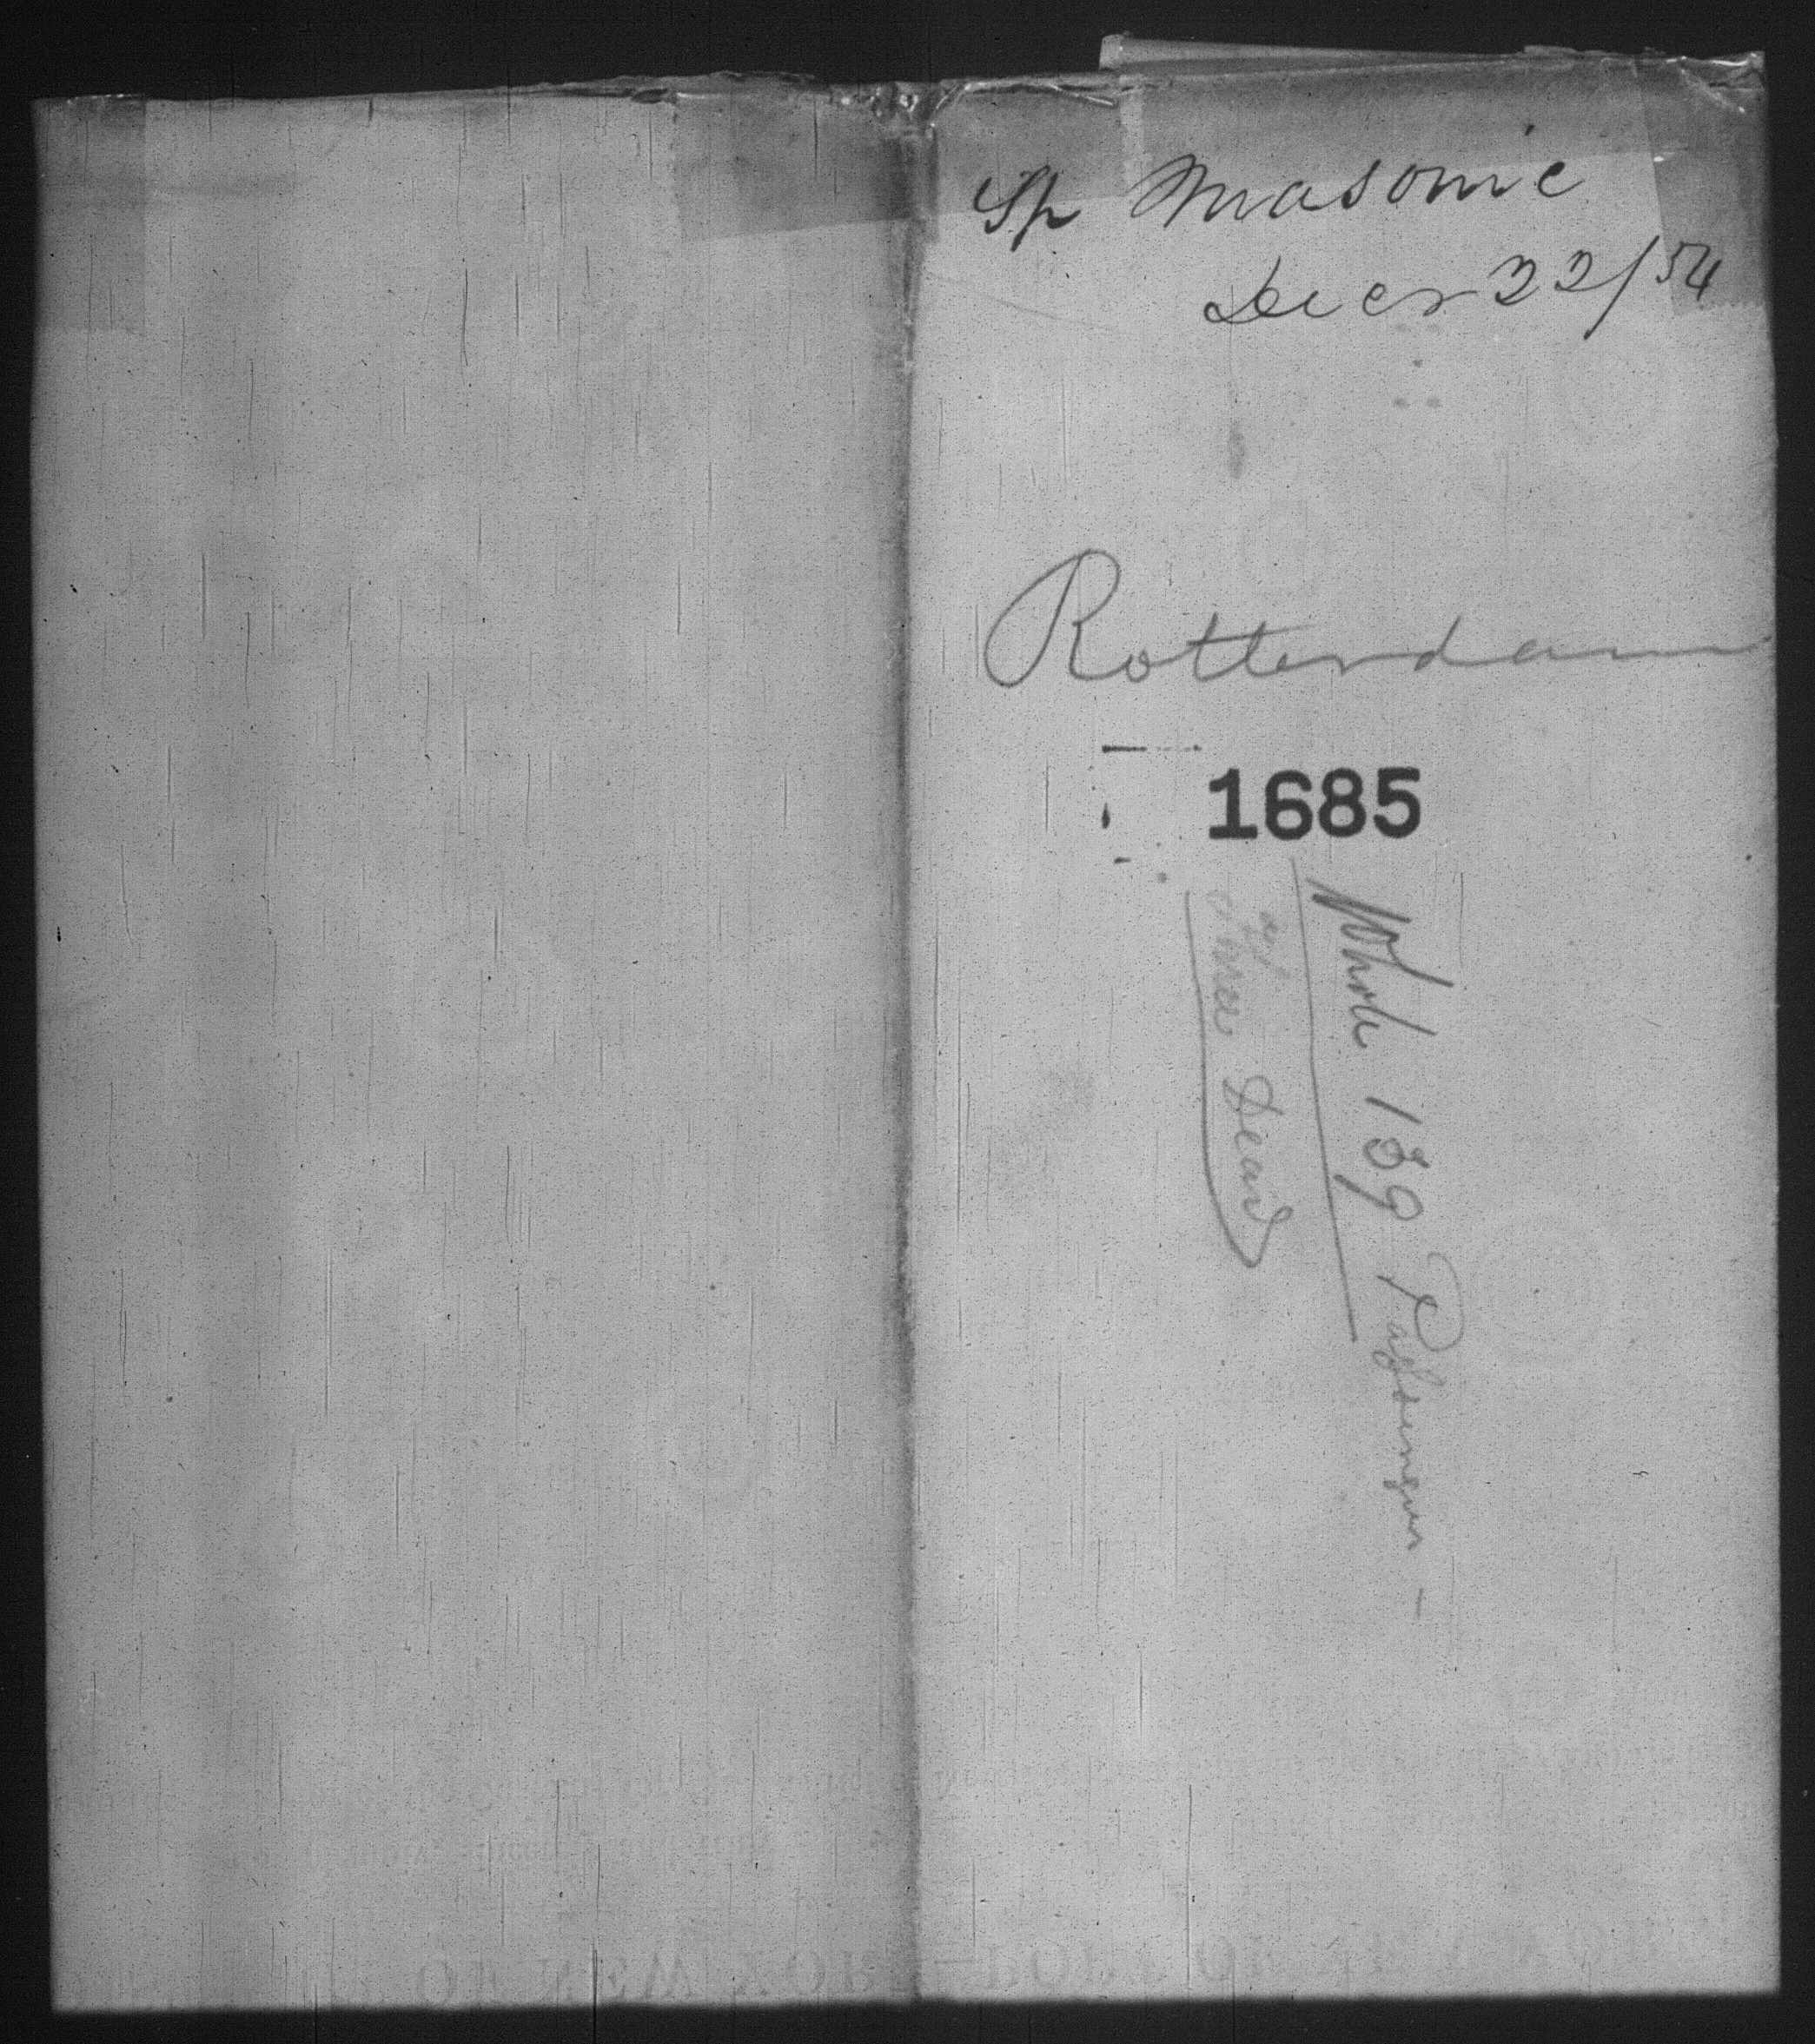 Sp Masonic
Decr 22/54
Rotterdam
1685
Whole 139 Passengers –
Dead